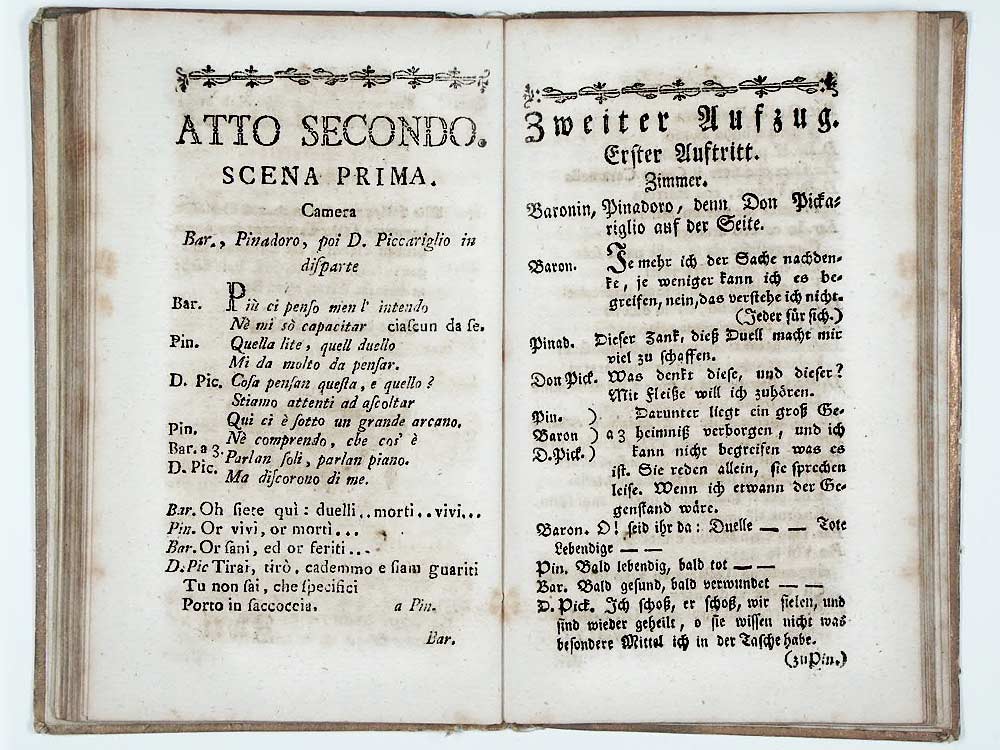 ATTO SECONDO.
SCENA PRIMA.
Camera
Bar., Pinadoro, poi D. Piccariglio in
diſparte
Bar. Più ci penſo men l' intendo
Nè mi sò capacitar ciaſcun da ſe.
Pin. Quella lite, quell duello
Mi da molto da penſar.
D. Pic. Coſa penſan queſta, e quello?
Stiamo attenti ad aſcoltar
Qui ci è ſotto un grande arcano.
Pin. Nè comprendo, che cos' è
Bar. a 3. Parlan ſoli, parlan piano.
D. Pic. Ma diſcorono di me.
Bar. Oh ſiete quì: duelli..morti..vivi...
Pin. Or vivi, or morti...
Bar. Or ſani, ed or feriti...
D. Pic Tirai, tirò, cademmo e ſiam guariti
Tu non ſai, che ſpecifici
Porto in ſaccoccia. a Pin.
Bar.
Zweiter Aufzug.
Erſter Auftritt.
Zimmer.
Baronin, Pinadoro, denn Don Picka-
riglio auf der Seite.
Baron. Je mehr ich der Sache nachden-
ke, je weniger kann ich es be-
greifen, nein, das verſtehe ich nicht.
(Jeder für ſich.)
Pinad. Dieſer Zank, dieß Duell macht mir
viel zu ſchaffen.
Don Pick. Was denkt dieſe, und dieſer?
Mit Fleiße will ich zuhören.
Pin. ) Darunter liegt ein groß Ge-
Baron ) a 3 heimniß verborgen, und ich
D.Pick. ) kann nicht begreifen was es
iſt. Sie reden allein, ſie ſprechen
leiſe. Wenn ich etwann der Ge-
genſtand wäre.
Baron. O! ſeid ihr da: Duelle — — Tote
Lebendige — —
Pin. Bald lebendig, bald tot — —
Bar. Bald geſund, bald verwundet — —
D. Pick. Ich ſchoß, er ſchoß, wir fielen, und
ſind wieder geheilt, o ſie wiſſen nicht was
beſondere Mittel ich in der Taſche habe.
(zu Pin.)